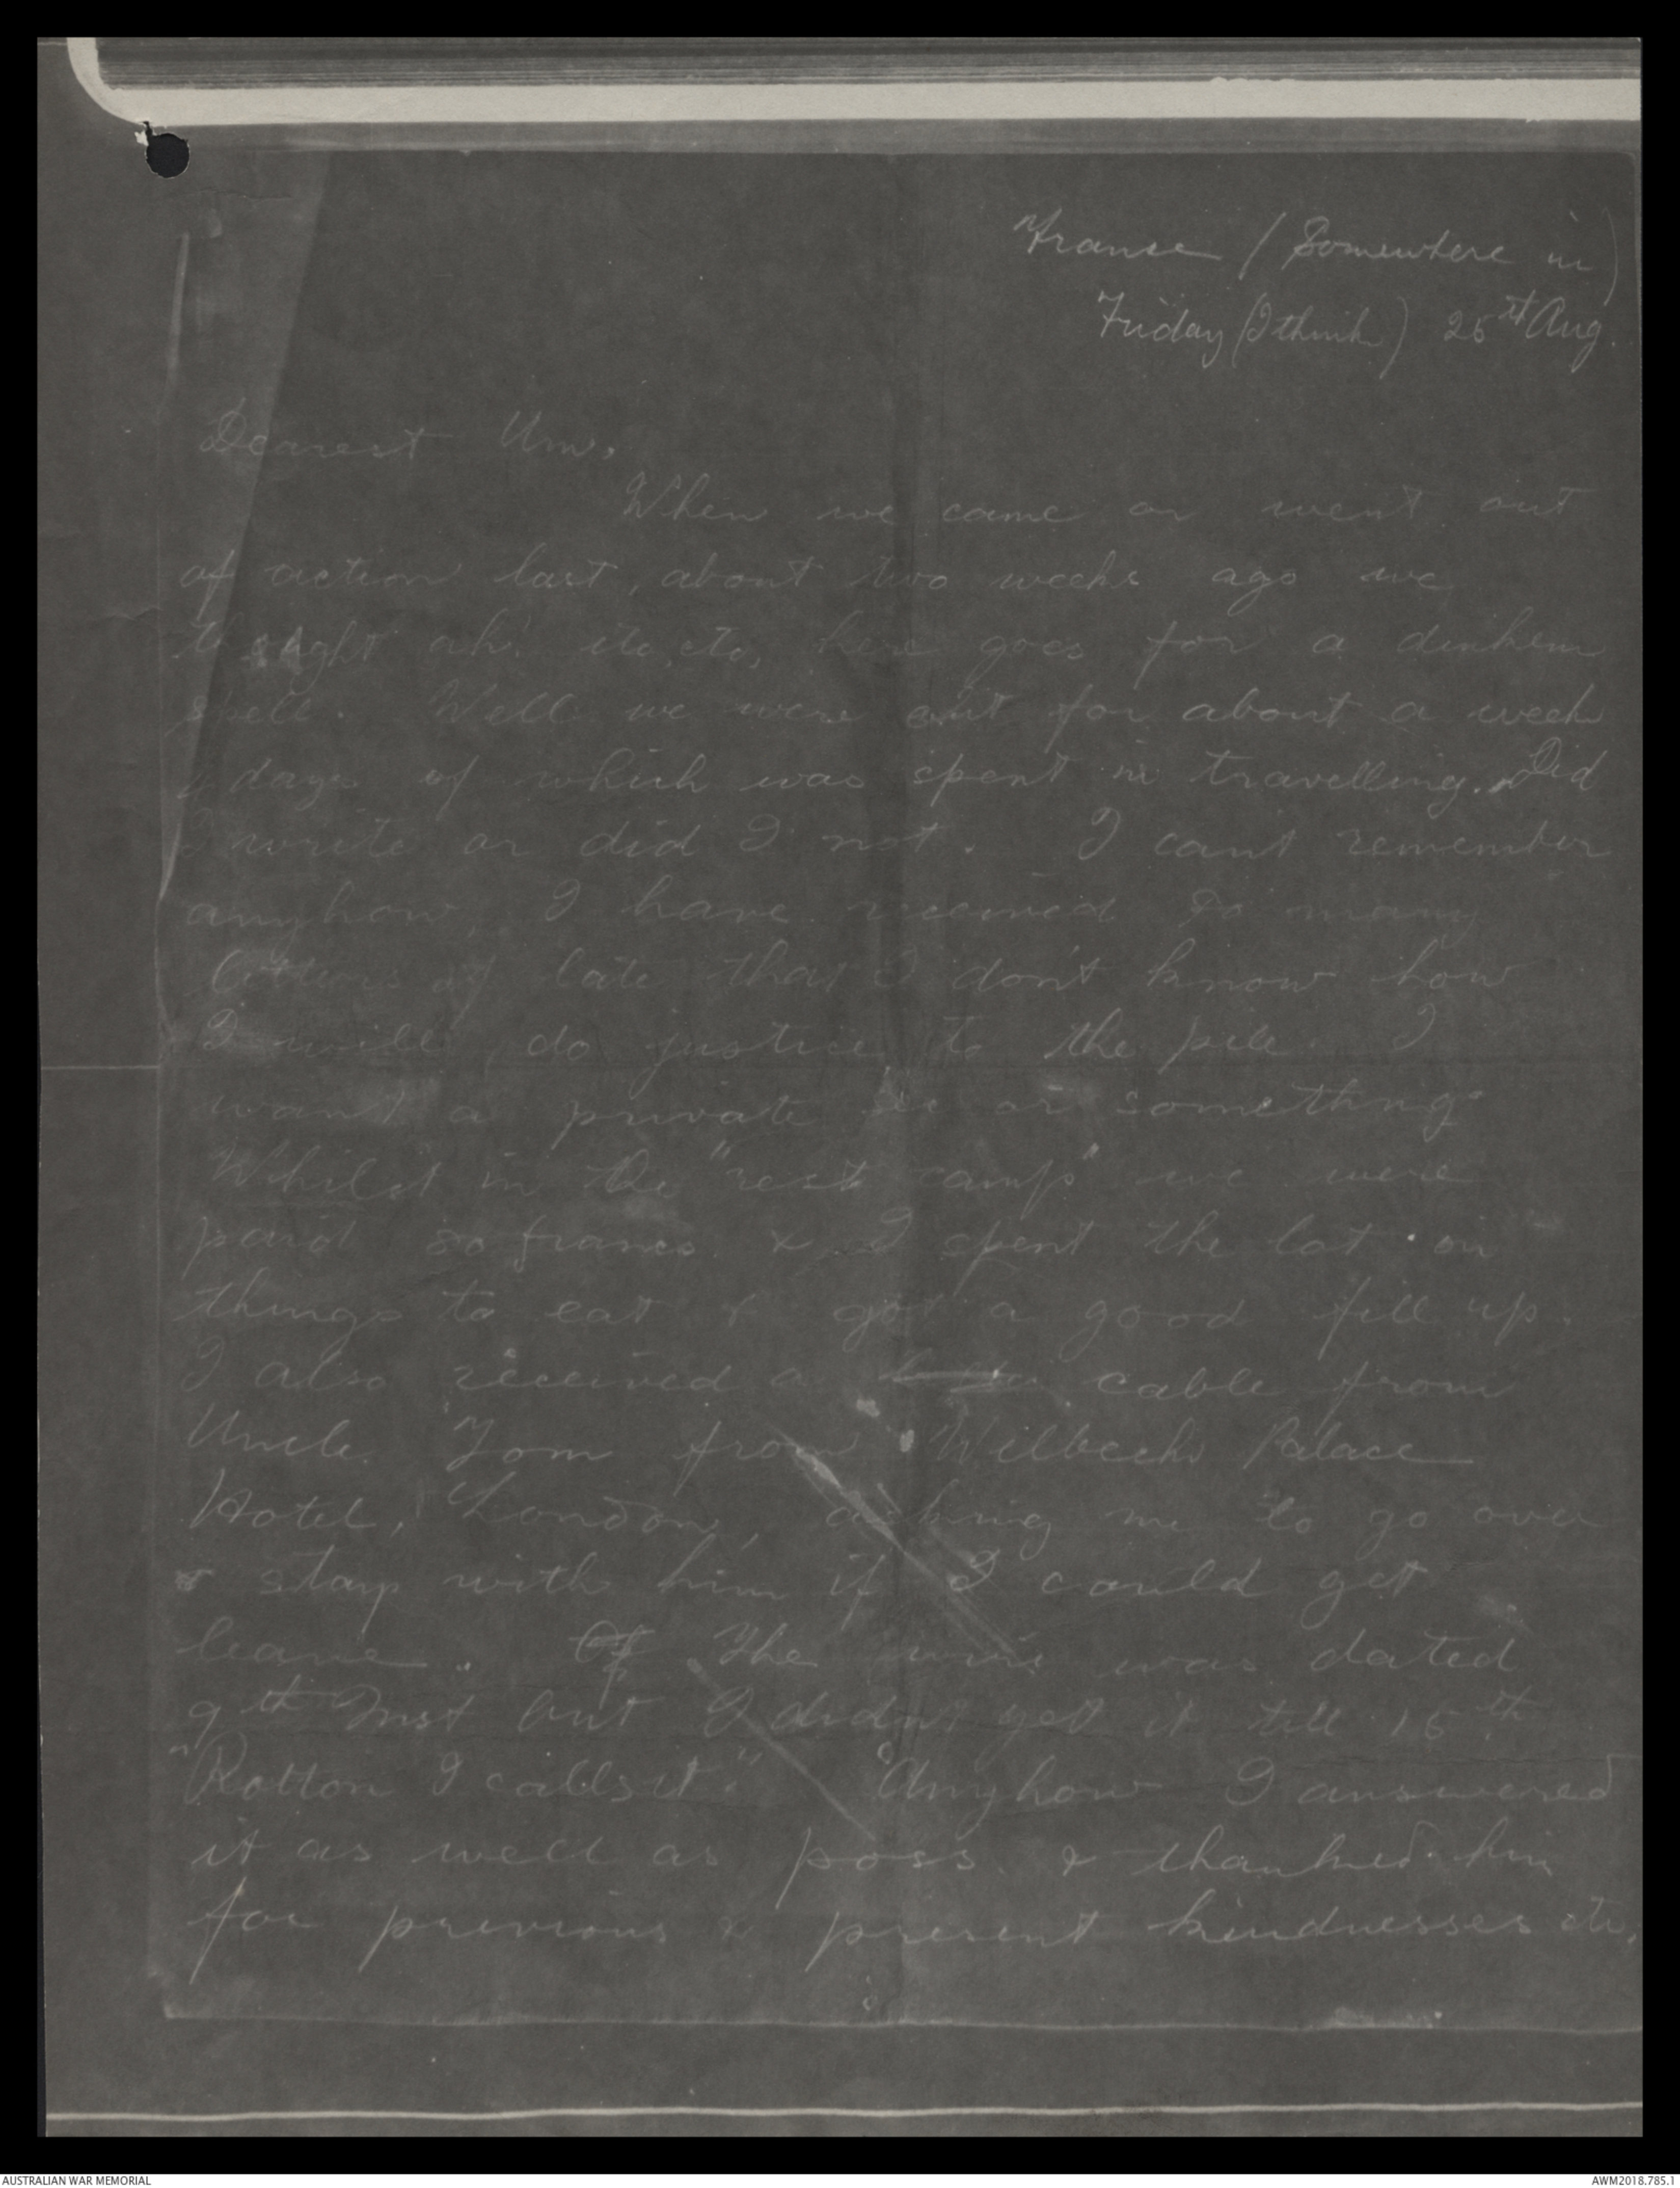 France (Somewhere in)
Friday (I think) 25th Aug.
Dearest Um,
When we came or went out
of action last, about two weeks ago we
thought ah! etc, etc, here goes for a dinkum
spell. Well we were out for about a week
days of which was spent in travelling. Did
I write or did I not. I cant remember
anyhow, I have received so many
letters of late that I don't know how
I will do justice to the pile. I
want a private sec or something
Whilst in the "rest camp" we were
paid francs & I spent the lot on
things to eat & got a good fill up.
I also received a cable from
Uncle Tom from Wellbecks Palace
Hotel, London, asking me to go over
& stay with him if I could get
leave. Of The wire was dated
9th Inst but I didn't get it till 15th
"Rotton I calls it." Anyhow I answered
it as well as poss. & thanked him
for previous & present kindnesses etc,
AUSTRALIAN WAR MEMORIAL
AWM2018.785.1